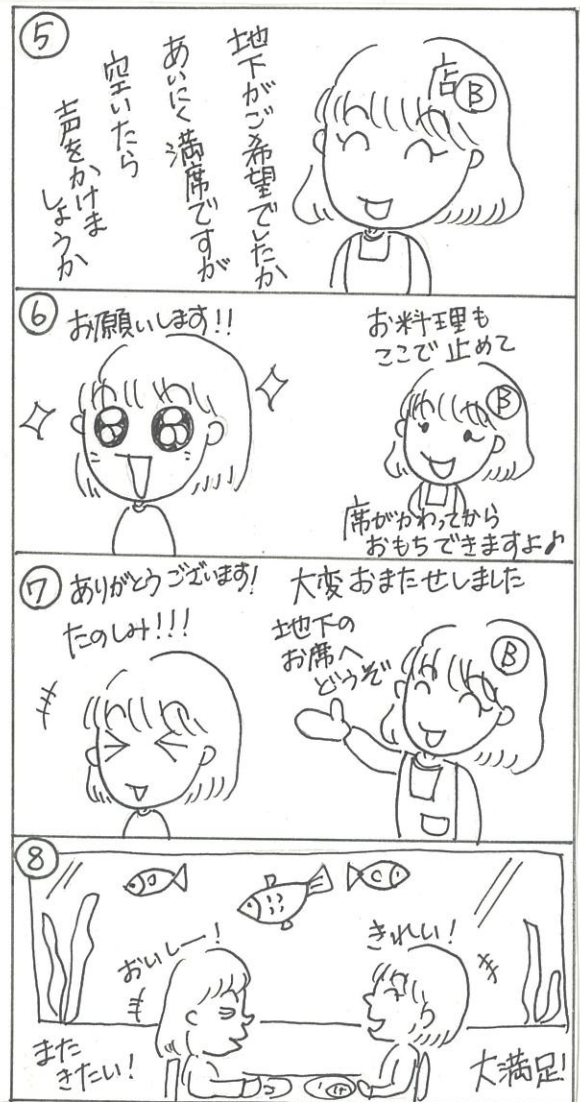 ⑤
店B
地下がご希望でしたか
あいにく満席ですが
空いたら
声をかけま
しょうか
⑥
お願いします!!
お料理も
ここで止めて
B
席がかわってから
おもちできますよ♪
⑦
ありがとうございます!
たのしみ!!!
大変おまたせしました
地下の
お席へ
どうぞ
B
⑧
おいしー!
きれい!
また
きたい!
大満足!